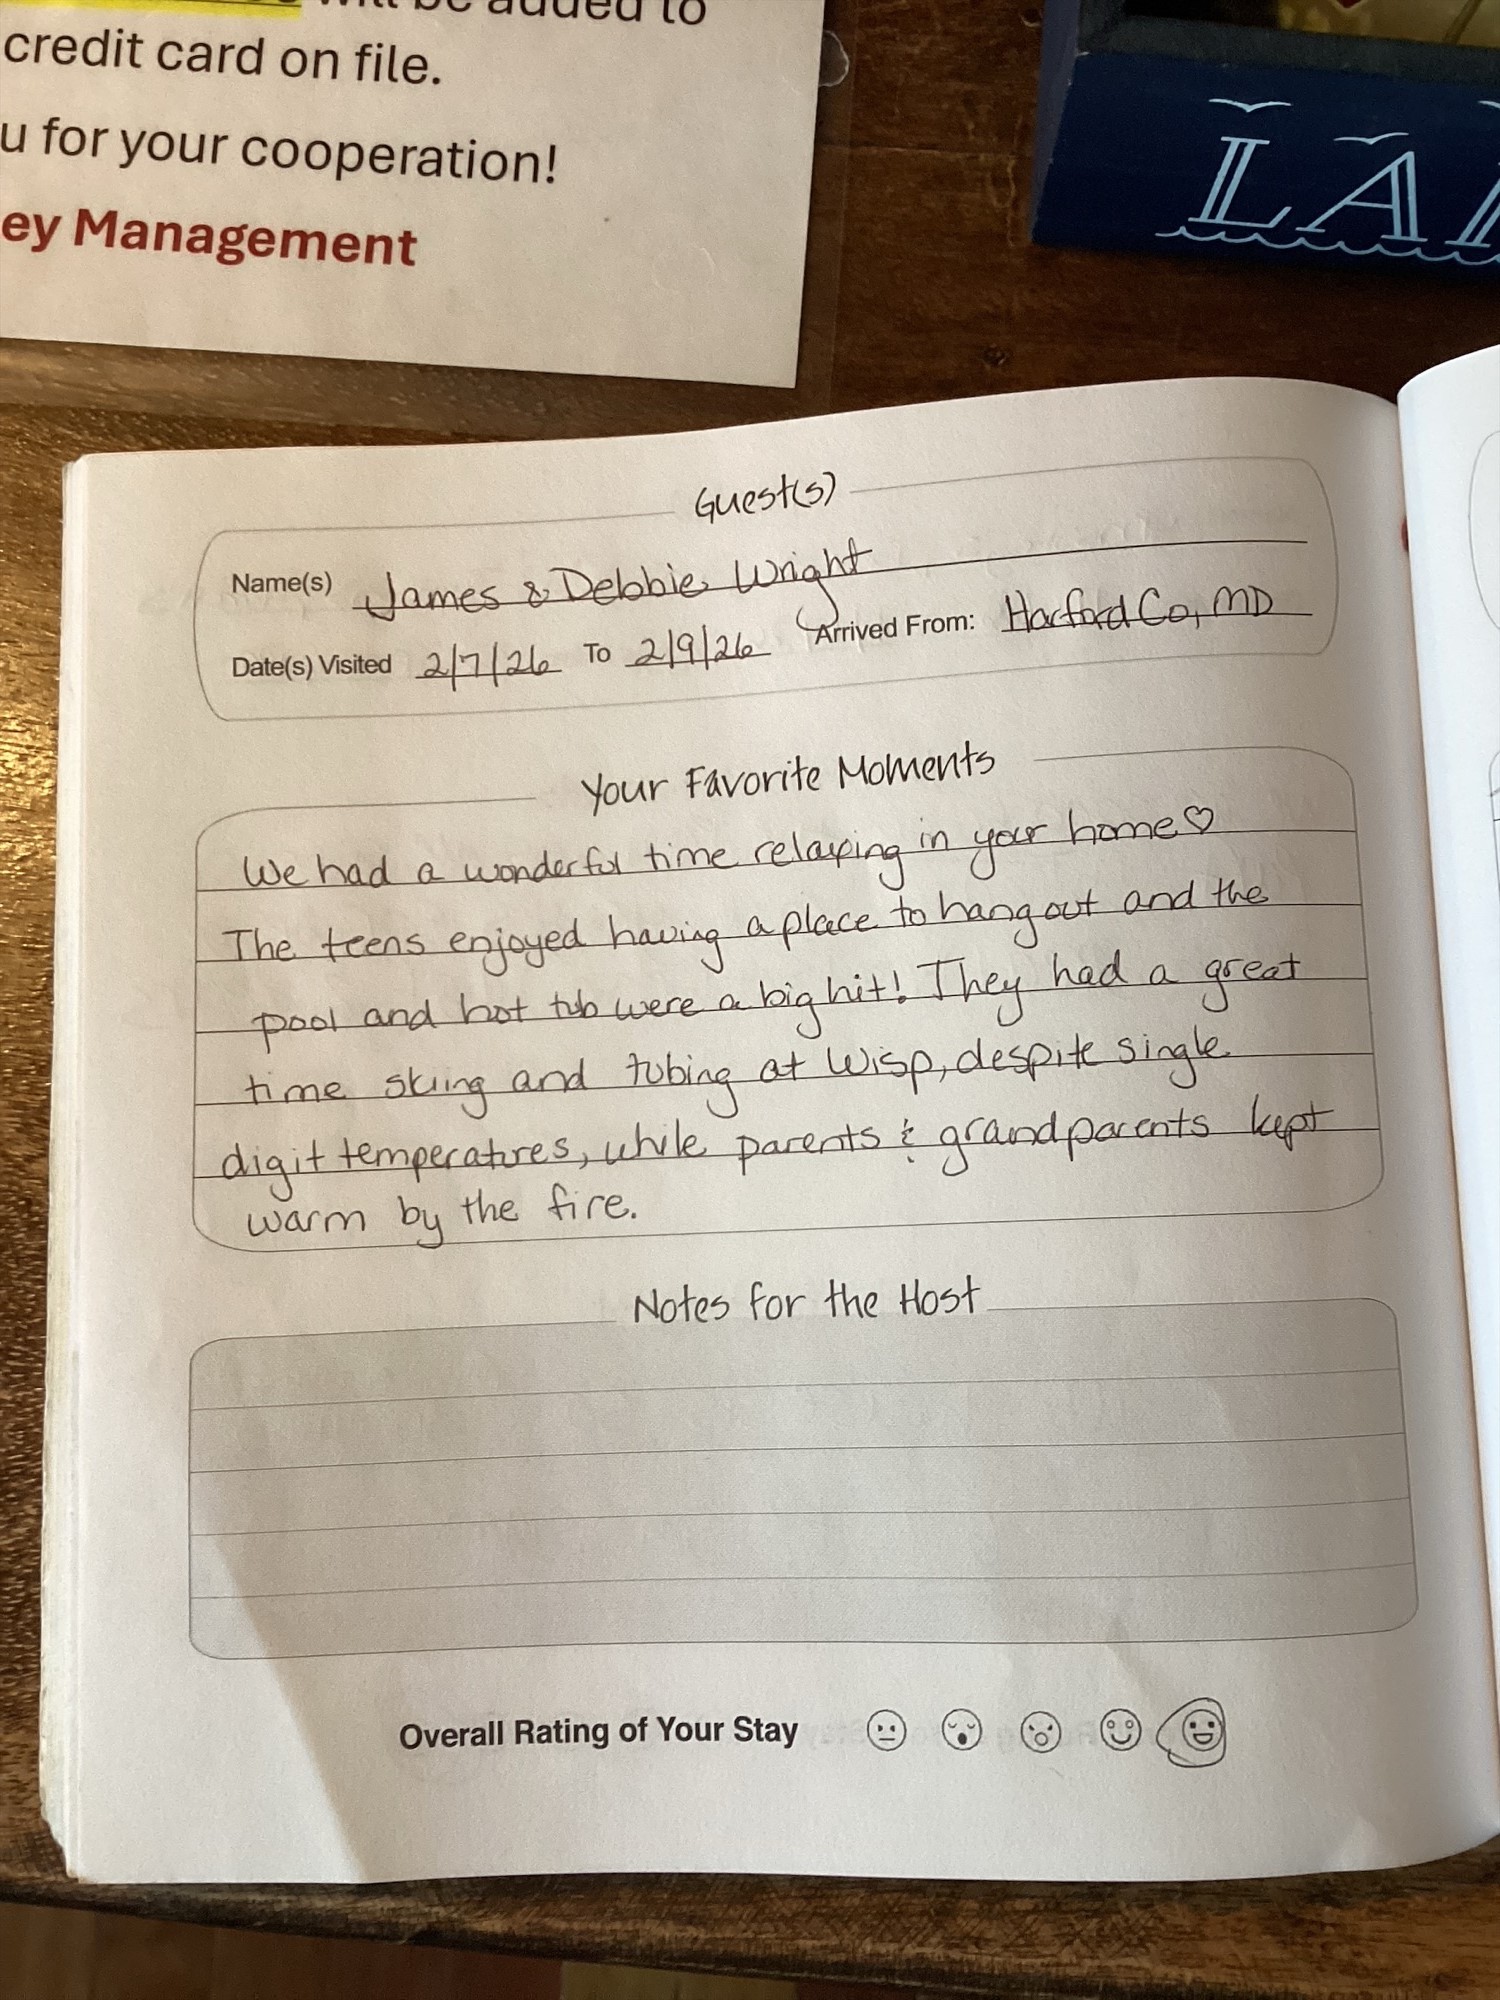 will be added to
credit card on file.
u for your cooperation!
ey Management
LA
Guest(s)
Name(s) James & Debbie Wright
Date(s) Visited 2/7/26 To 2/9/26 Arrived From: Harford Co, MD
Your Favorite Moments
We had a wonderful time relaxing in your home♡
The teens enjoyed having a place to hang out and the
pool and hot tub were a big hit! They had a great
time skiing and tubing at Wisp, despite single
digit temperatures, while parents & grandparents kept
warm by the fire.
Notes for the Host
Overall Rating of Your Stay